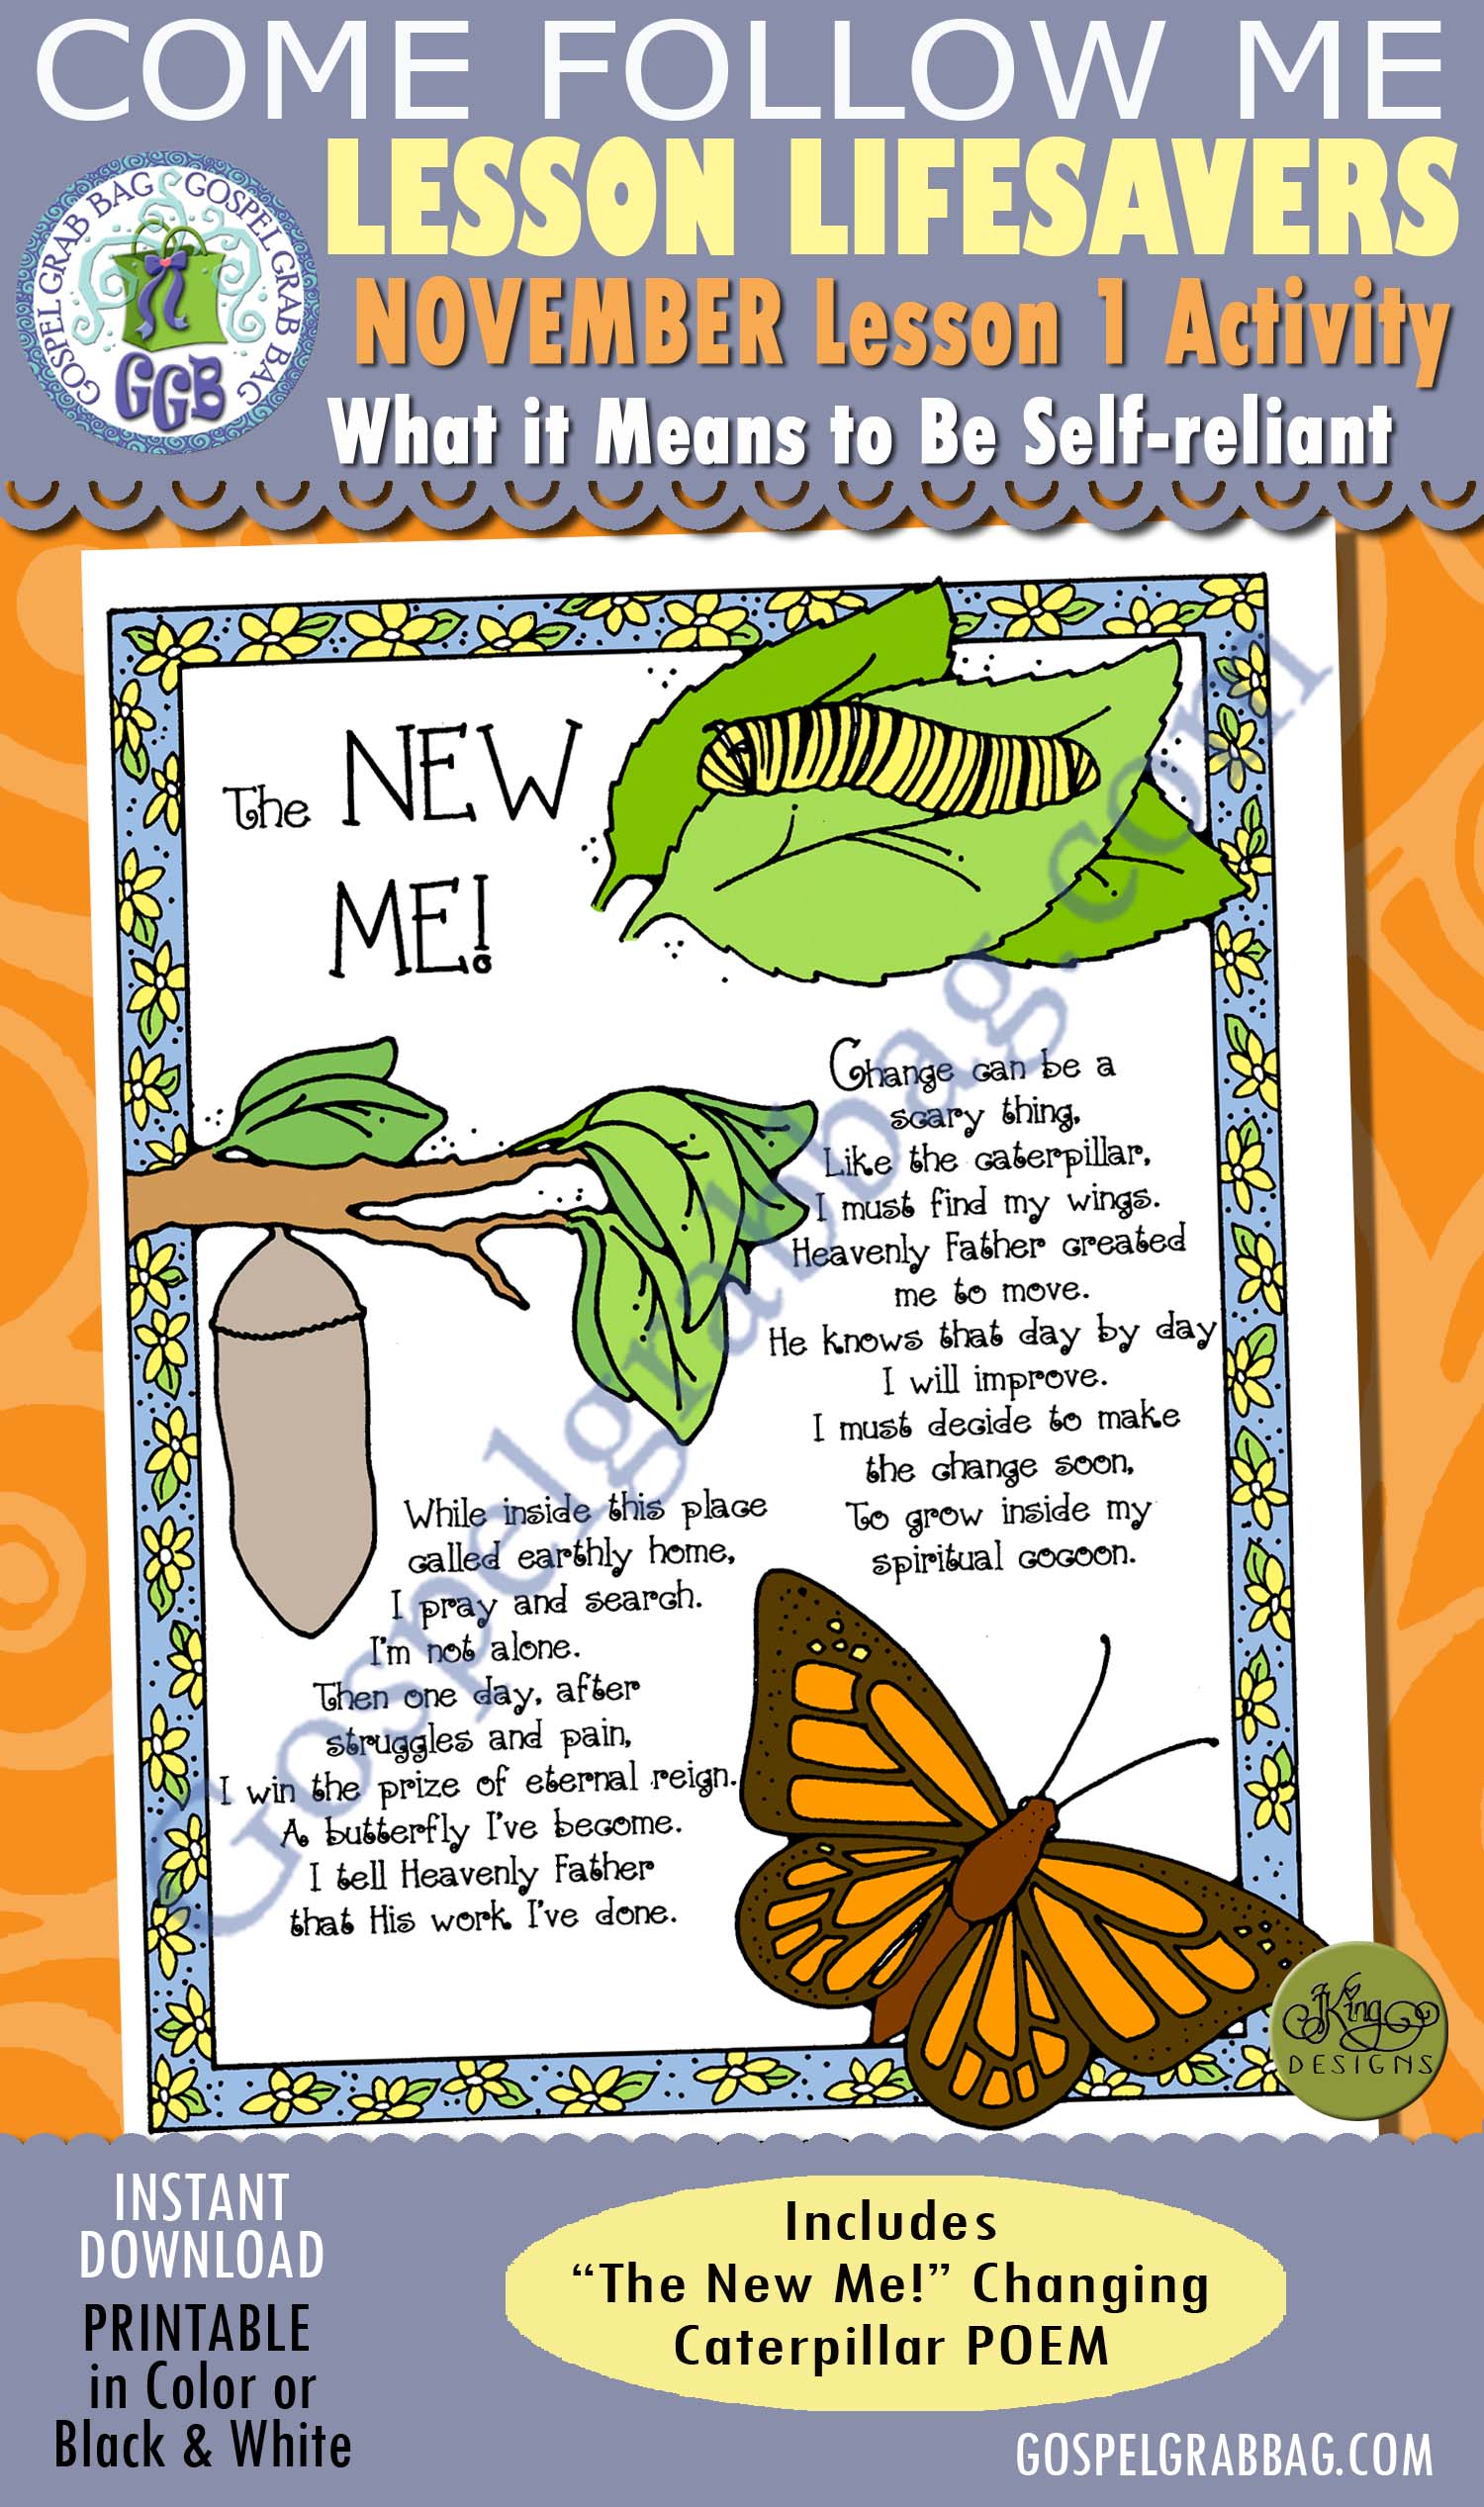 COME FOLLOW ME
LESSON LIFESAVERS
NOVEMBER Lesson 1 Activity
What it Means to Be Self-reliant
GOSPEL GRAB BAG GOSPEL GRAB BAG
GGB
The NEW
ME!
Change can be a
scary thing,
Like the caterpillar,
I must find my wings.
Heavenly Father created
me to move.
He knows that day by day
I will improve.
I must decide to make
the change soon,
To grow inside my
spiritual cocoon.
While inside this place
called earthly home,
I pray and search.
I'm not alone.
Then one day, after
struggles and pain,
I win the prize of eternal reign.
A butterfly I've become.
I tell Heavenly Father
that His work I've done.
Gospelgrabbag.com
JKing
DESIGNS
INSTANT
DOWNLOAD
PRINTABLE
in Color or
Black & White
Includes
“The New Me!” Changing
Caterpillar POEM
GOSPELGRABBAG.COM